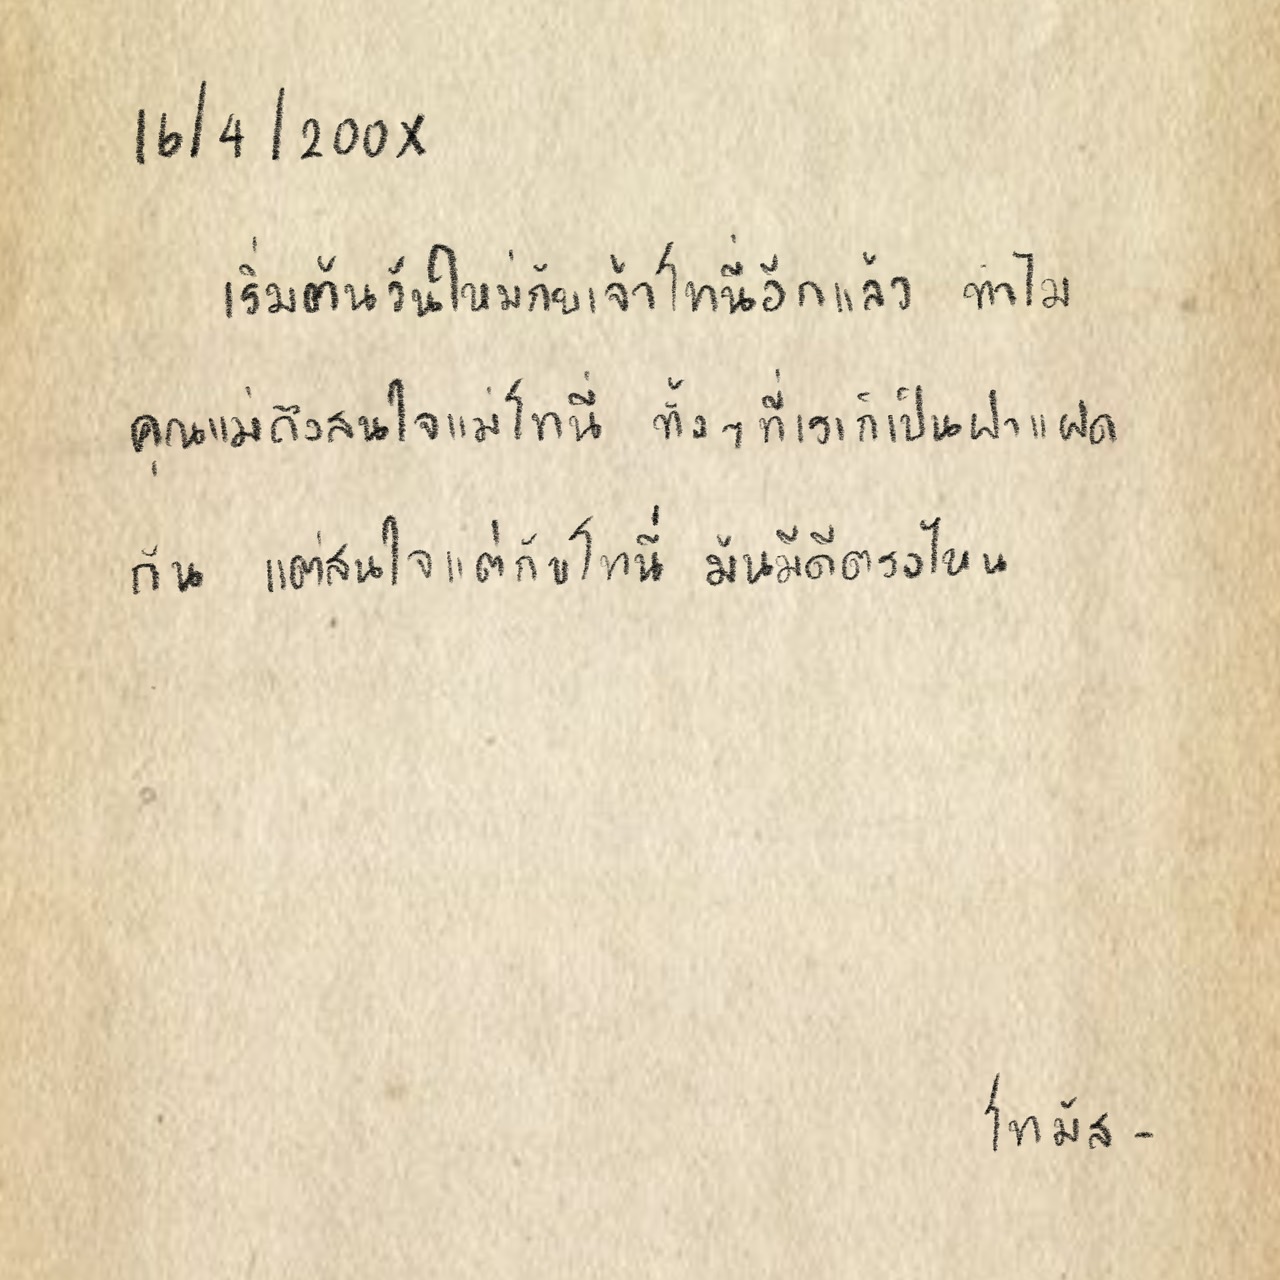 16/4/200X
เริ่มต้นวันใหม่กับเจ้าโทนี่อีกแล้ว ทำไม
คุณแม่ถึงสนใจแม่โทนี่ ทั้งๆที่เราก็เป็นฝาแฝด
กัน แต่สนใจแต่กับโทนี่ มันมีดีตรงไหน
โทมัส -